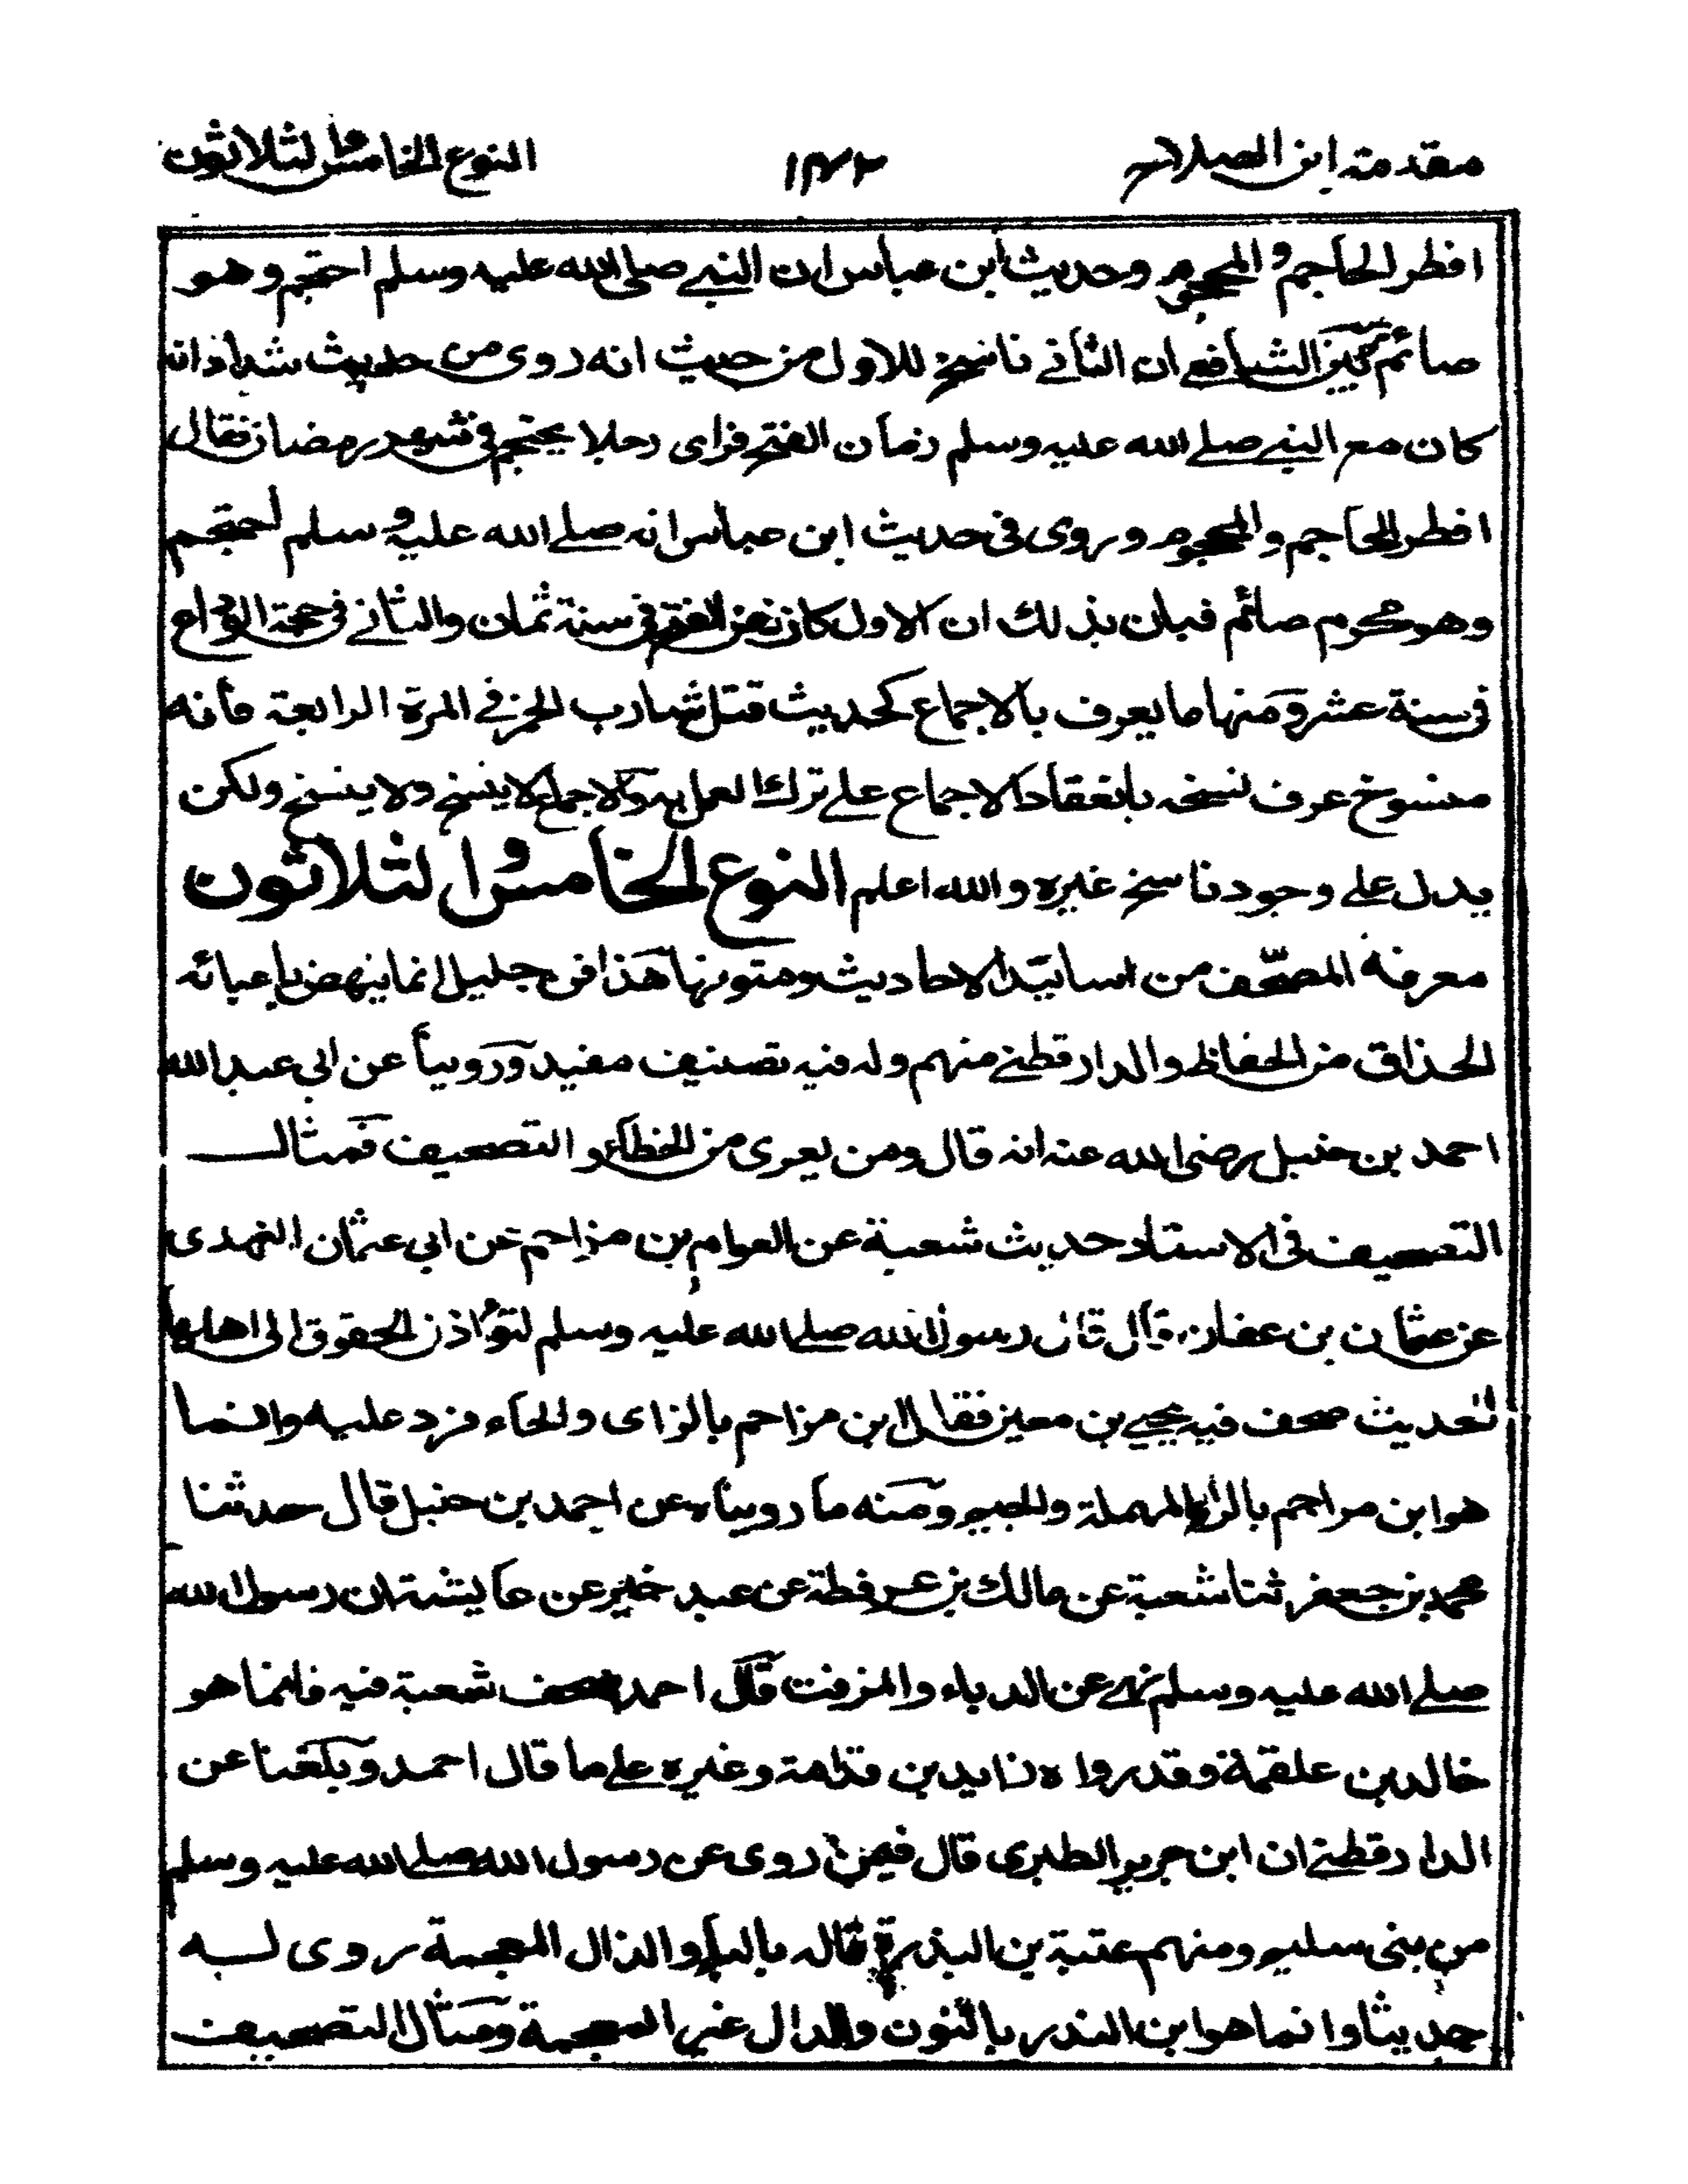 مقدمته ابن الصلاح ١٤٣ النوع الخامس والثلاثون
افطر الحاجم والمحجوم وحديث ابن عباس ان النبي صلى الله عليه وسلم احتجم وهو
صائم فبين الشافعي ان الثاني ناسخ للاول من حيث انه روى من حديث شداد انه
كان مع النبي صلى الله عليه وسلم زمان الفتح فراى رجلا يحتجم في شهر رمضان فقال
افطر الحاجم والمحجوم وروى في حديث ابن عباس انه صلى الله عليه وسلم احتجم
وهو محرم صائم فبان بذلك ان الاول كان زمن الفتح في سنة ثمان والثاني في حجة الوداع
في سنة عشر ومنها ما يعرف بالاجماع كحديث قتل شارب الخمر في المرة الرابعة فانه
منسوخ عرف نسخه بانعقاد الاجماع على ترك العمل به والاجماع لا ينسخ ولا ينسخ ولكن
يدل على وجود ناسخ غيره والله اعلم النوع الخامس والثلاثون
معرفة المصحف من اسانيد الاحاديث ومتونها هذا فن جليل انما ينهض باعبائه
الحذاق من الحفاظ والدارقطني منهم وله فيه تصنيف مفيد وروينا عن ابي عبد الله
احمد بن حنبل رضى الله عنه انه قال ومن يعرى من الخطاء و التصحيف فمثال
التصحيف في الاسناد حديث شعبة عن العوام بن مزاحم عن ابي عثمان النهدى
عن عثمان بن عفان قال قال رسول الله صلى الله عليه وسلم لتؤدن الحقوق الى اهلها
الحديث صحف فيه يحيي بن معين فقال ابن مزاحم بالزاى والحاء فرد عليه وانما
هو ابن مراجم بالراء المهملة والجيم ومنه ما رويناه عن احمد بن حنبل قال حدثنا
محمد بن جعفر ثنا شعبة عن مالك بن عرفطة عن عبد خير عن عايشة ان رسول الله
صلى الله عليه وسلم نهى عن الدباء والمزفت قال احمد صحف شعبة فيه فانما هو
خالد بن علقمة وقد رواه زايد بن قدامة وغيره على ما قال احمد وبلغنا عن
الدارقطني ان ابن جرير الطبري قال فيمن روى عن رسول الله صلى الله عليه وسلم
من بنى سليم ومنهم عتبة بن البذرة قاله بالباء والذال المعجمة روى له
حديثا وانما هو ابن الندر بالنون والدال غير المعجمة ومثال التصحيف